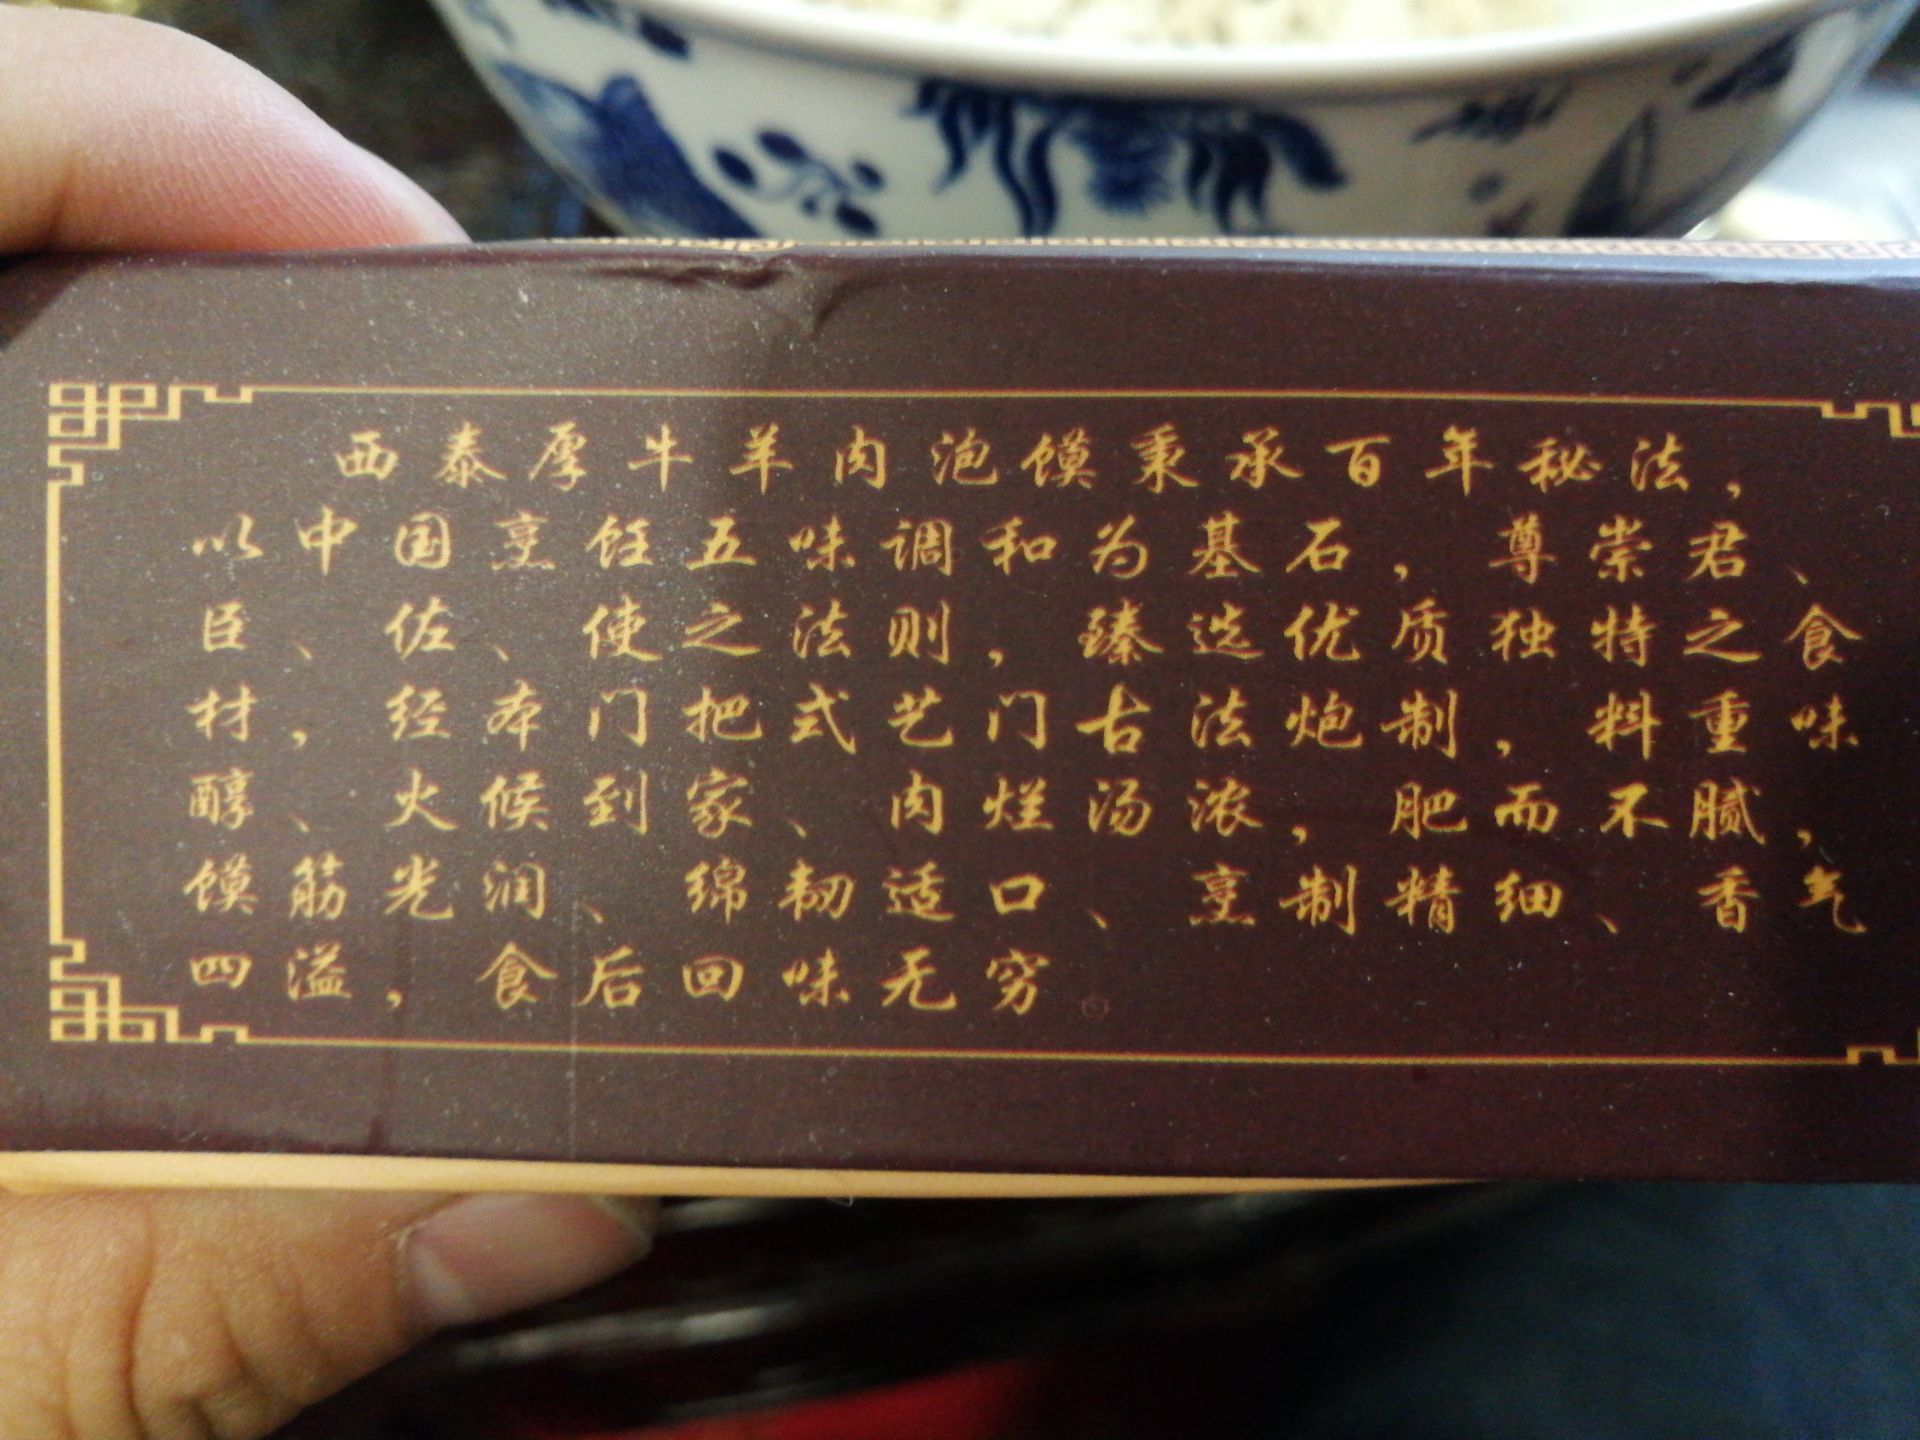 西泰厚牛羊肉泡馍秉承百年秘法，
以中国烹饪五味调和为基石，尊崇君、
臣、佐、使之法则，臻选优质独特之食
材，经本门把式艺门古法炮制，料重味
醇、火候到家、肉烂汤浓，肥而不腻，
馍筋光润、绵韧适口、烹制精细、香气
四溢，食后回味无穷。